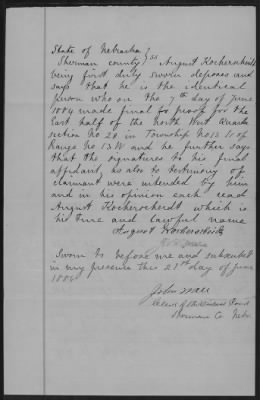 State of Nebraska }
Sherman county } ss August Kocherscheidt
being first duly sworn deposes and
says that he is the identical
person who on the 7th day of June
1884 made final proof for the
East half of the North West Quarter
section No 28 in Township No 13 N of
Range No 13 W and he further says
that the signatures to his final
affidavit, as also to testimony of
claimant were intended by him
and in his opinion each read
August Kocherscheidt which is
his true and lawful name
August Kocherscheidt
Sworn to before me and subscribed
in my presence this 21st day of June
1884
John Wall
Clerk of the District Court
Sherman Co Nebr